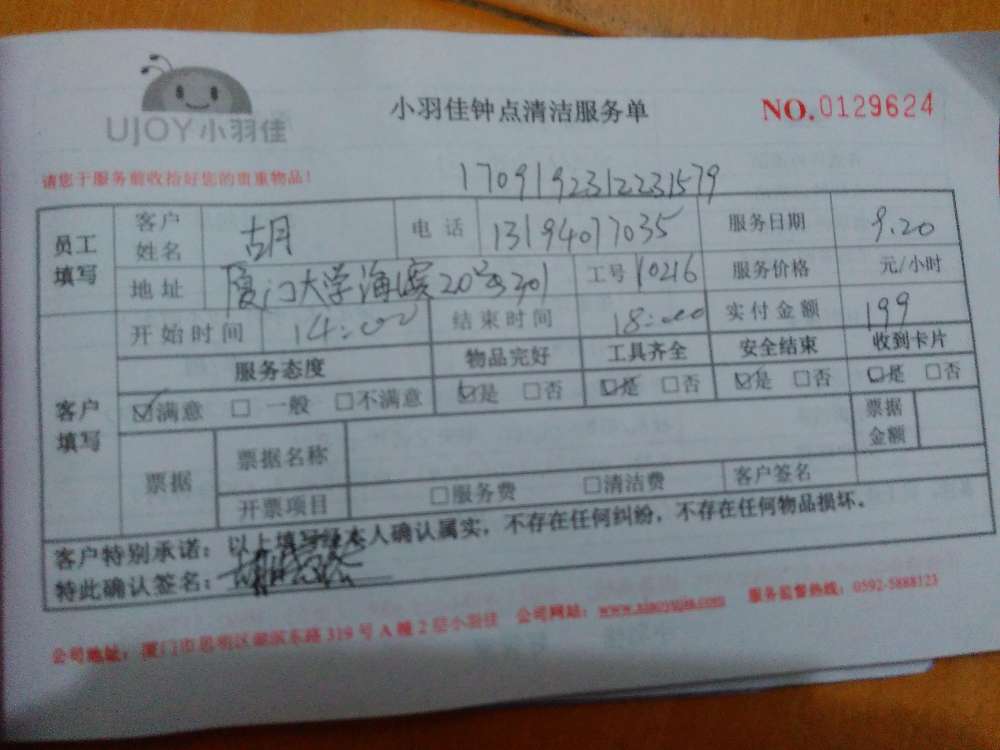 UJOY小羽佳
小羽佳钟点清洁服务单
NO.0129624
请您于服务前收拾好您的贵重物品!
1709192312231579
员工填写 客户姓名 胡月 电话 13194077035 服务日期 9.20
地址 厦门大学海滨20号301 工号 10216 服务价格 元/小时
开始时间 14:00 结束时间 18:00 实付金额 199
客户填写 服务态度 物品完好 工具齐全 安全结束 收到卡片
☑满意 □一般 □不满意 ☑是 □否 ☑是 □否 ☑是 □否 ☑是 □否
票据 票据名称 票据金额
开票项目 □服务费 □清洁费 客户签名
客户特别承诺:以上填写经本人确认属实,不存在任何纠纷,不存在任何物品损坏。
特此确认签名:
公司地址:厦门市思明区湖滨东路319号A幢2层小羽佳 公司网站: 服务监督热线:0592-5888123